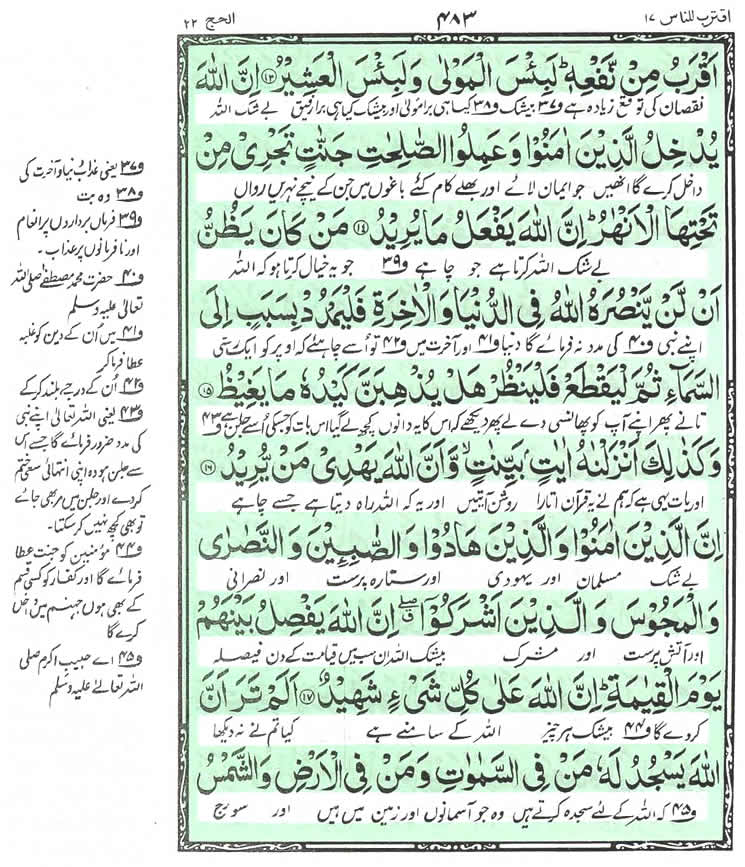 اقترب للناس ۱۷
۴۸۳
الحج ۲۲
اَقْرَبُ مِنْ نَّفْعِهٖ ؕ لَبِئْسَ الْمَوْلٰى وَ لَبِئْسَ الْعَشِيْرُ ﴿۱۳﴾ اِنَّ اللّٰهَ
نقصان کی توقع زیادہ ہے و۳۷ بیشک و۳۸ کیا ہی برا مولیٰ اور بیشک کیا ہی برا رفیق بے شک اللہ
يُدْخِلُ الَّذِيْنَ اٰمَنُوْا وَ عَمِلُوا الصّٰلِحٰتِ جَنّٰتٍ تَجْرِيْ مِنْ
داخل کرے گا انھیں جو ایمان لائے اور بھلے کام کئے باغوں میں جن کے نیچے نہریں رواں
تَحْتِهَا الْاَنْهٰرُ ؕ اِنَّ اللّٰهَ يَفْعَلُ مَا يُرِيْدُ ﴿۱۴﴾ مَنْ كَانَ يَظُنُّ
بے شک اللہ کرتا ہے جو چاہے و۳۹ جو یہ خیال کرتا ہو کہ اللہ
اَنْ لَّنْ يَّنْصُرَهُ اللّٰهُ فِي الدُّنْيَا وَ الْاٰخِرَةِ فَلْيَمْدُدْ بِسَبَبٍ اِلَى
اپنے نبی و۴۰ کی مدد نہ فرمائے گا دنیا و۴۱ اور آخرت میں و۴۲ تو اسے چاہئے کہ اوپر کو ایک رسی
السَّمَآءِ ثُمَّ لْيَقْطَعْ فَلْيَنْظُرْ هَلْ يُذْهِبَنَّ كَيْدُهٗ مَا يَغِيْظُ ﴿۱۵﴾
تانے پھر اپنے آپ کو پھانسی دے لے پھر دیکھے کہ اس کا یہ دانوں کچھ لے گیا اس بات کو جسکی اُسے جلن ہے و۴۳
وَ كَذٰلِكَ اَنْزَلْنٰهُ اٰيٰتٍۭ بَيِّنٰتٍ ۙ وَّ اَنَّ اللّٰهَ يَهْدِيْ مَنْ يُّرِيْدُ ﴿۱۶﴾
اور بات یہی ہے کہ ہم نے یہ قرآن اتارا روشن آیتیں اور یہ کہ اللہ راہ دیتا ہے جسے چاہے
اِنَّ الَّذِيْنَ اٰمَنُوْا وَ الَّذِيْنَ هَادُوْا وَ الصّٰبِـِٕيْنَ وَ النَّصٰرٰى
بے شک مسلمان اور یہودی اور ستارہ پرست اور نصرانی
وَ الْمَجُوْسَ وَ الَّذِيْنَ اَشْرَكُوْۤا ۖ اِنَّ اللّٰهَ يَفْصِلُ بَيْنَهُمْ
اور آتش پرست اور مشرک بیشک اللہ ان سب میں قیامت کے دن فیصلہ
يَوْمَ الْقِيٰمَةِ ؕ اِنَّ اللّٰهَ عَلٰى كُلِّ شَيْءٍ شَهِيْدٌ ﴿۱۷﴾ اَلَمْ تَرَ اَنَّ
کردے گا و۴۴ بیشک ہر چیز اللہ کے سامنے ہے کیا تم نے نہ دیکھا
اللّٰهَ يَسْجُدُ لَهٗ مَنْ فِي السَّمٰوٰتِ وَ مَنْ فِي الْاَرْضِ وَ الشَّمْسُ
و۴۵ کہ اللہ کے لئے سجدہ کرتے ہیں وہ جو آسمانوں اور زمین میں ہیں اور سورج
و۳۷ یعنی عذاب دنیا و آخرت کی
و۳۸ وہ بت
و۳۹ فرماں برداروں پر انعام
اور نافرمانوں پر عذاب ۔
و۴۰ حضرت محمد مصطفےٰ صلی اللہ
تعالیٰ علیہ وسلم
و۴۱ میں ان کے دین کو غلبہ
عطا فرما کر
و۴۲ اُن کے درجے بلند کرکے
و۴۳ یعنی اللہ تعالیٰ اپنے نبی
کی مدد ضرور فرمائے گا جسے اس
سے جلن ہو وہ اپنی انتہائی سعی ختم
کردے اور جلن میں مر بھی جائے
تو بھی کچھ نہیں کر سکتا۔
و۴۴ مؤمنین کو جنت عطا
فرمائے گا اور کفار کو کسی قسم
کے بھی ہوں جہنم میں داخل
کرے گا
و۴۵ اے حبیب اکرم صلی
اللہ تعالےٰ علیہ وسلم